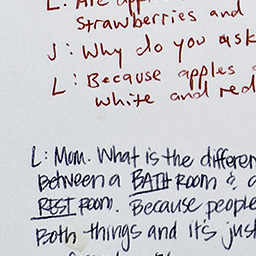 L: Are
strawberries and
J: Why do you ask
L: Because apples
white and red
L: Mom. What is the differen
Between a BATH ROOM & a
REST ROOM. Because people
Both things and it's just